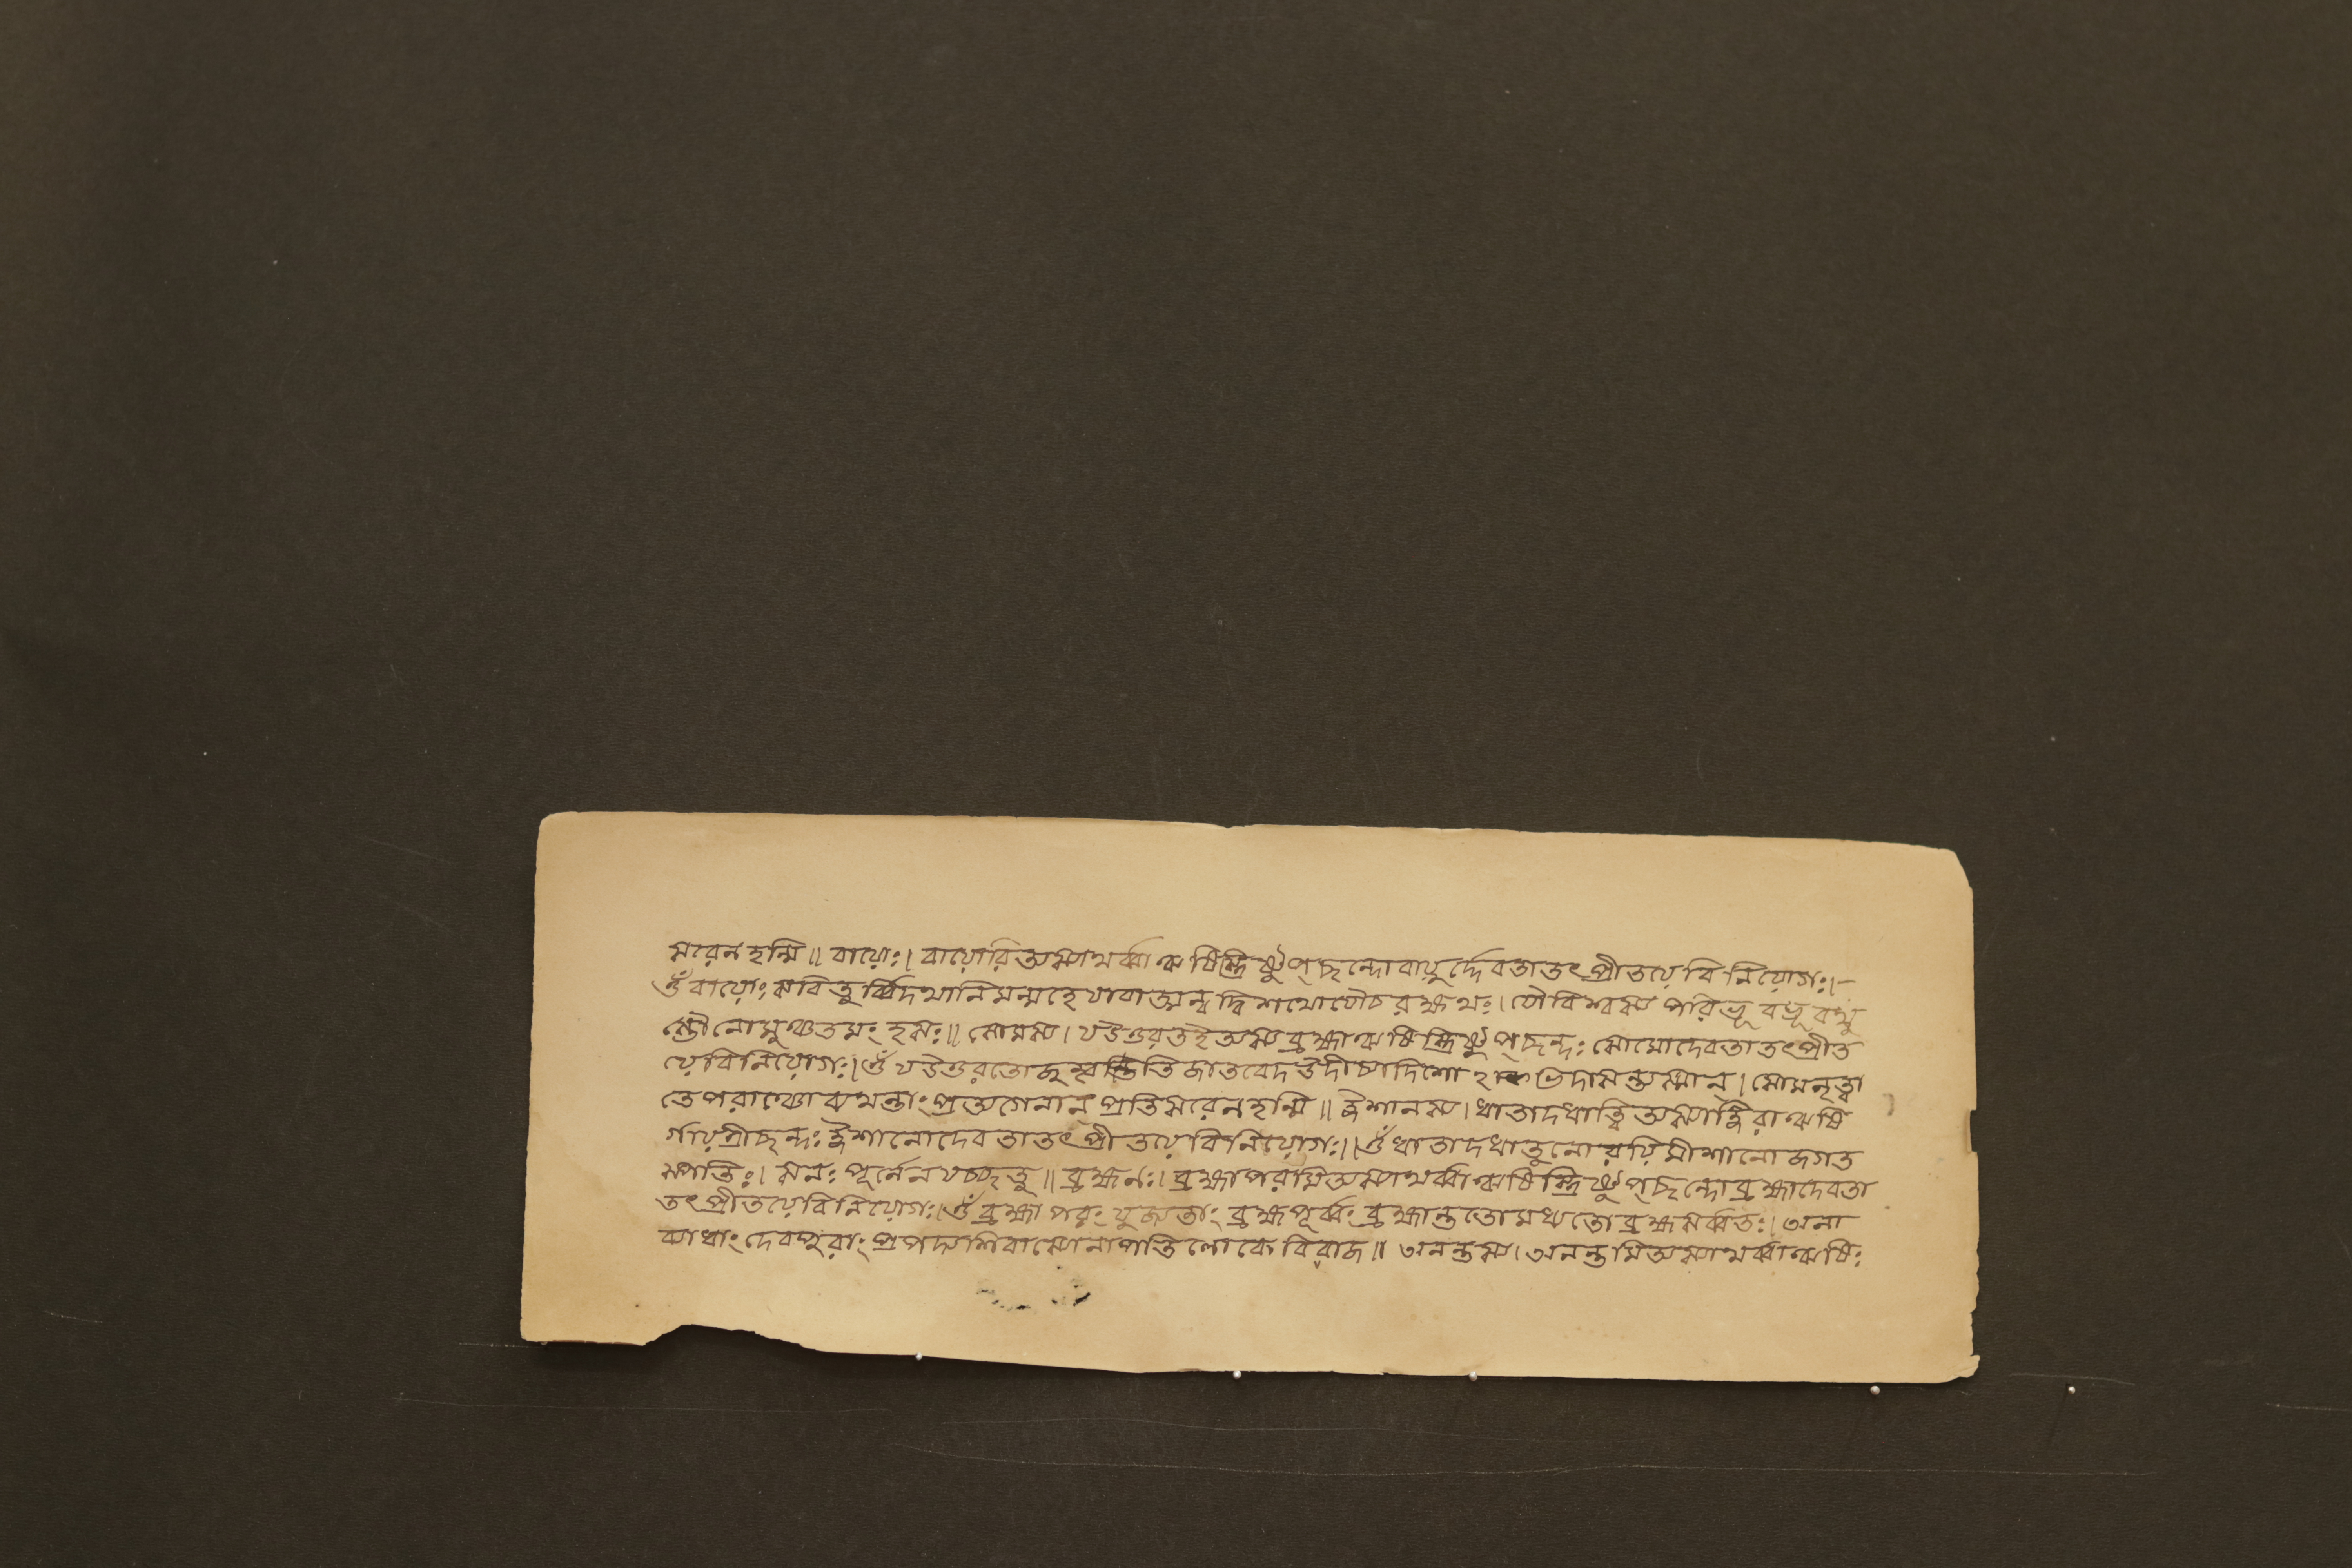 সরেন হন্মি ॥ বায়োঃ। বায়োরিত্যস্যাথর্ব্বা ঋষিস্ত্রিষ্টুপ্ছন্দো বায়ুর্দ্দেবতা তৎপ্রীতয়ে বিনিয়োগঃ।—
ওঁ বায়োঃ সবিতুর্ব্বিদথানি মন্মহে যাবাত্মন্বদ্বিশথো যৌ চ রক্ষথঃ। যৌ বিশ্বস্য পরিভূ বভূবথু
স্তৌ নো মুঞ্চতমংহসঃ॥ সোমস্য। য উত্তরত ই অস্য ব্রহ্মা ঋষিস্ত্রিষ্টুপ্ছন্দঃ সোমো দেবতা তৎপ্রীত
য়ে বিনিয়োগঃ। ওঁ য উত্তরতো জুহ্বতি জাতবেদ উদীচ্যা দিশো ভিদাসন্ত্যস্মান্। সোমমৃত্বা
তে পরাঞ্চো ব্যথন্তাং প্রত্যগেনান্ প্রতিসরেন হন্মি ॥ ঈশানস্য। ধাতা দধাত্বিত্যস্যাঙ্গিরা ঋষি
র্গায়ত্রীছন্দঃ ঈশানো দেবতা তৎপ্রীতয়ে বিনিয়োগঃ। ওঁ ধাতা দধাতু নো রয়িমীশানো জগত
স্পতিঃ। সনঃ পূর্নেন যচ্ছতু ॥ ব্রহ্মনঃ। ব্রহ্মাপরমিত্যস্যাথর্ব্বা ঋষিস্ত্রিষ্টুপ্ছন্দো ব্রহ্মা দেবতা
তৎপ্রীতয়ে বিনিয়োগঃ। ওঁ ব্রহ্মাপরং যুজ্যতাং ব্রহ্মপূর্ব্বং ব্রহ্মান্ততো মধ্যতো ব্রহ্ম সর্ব্বতঃ। অনা
ব্যাধাং দেবপুরাং প্রপদ্য শিবা স্যোনা পতিলোকে বিরাজ ॥ অনন্তস্য। অনন্তমিত্যস্যাথর্ব্বা ঋষিঃ